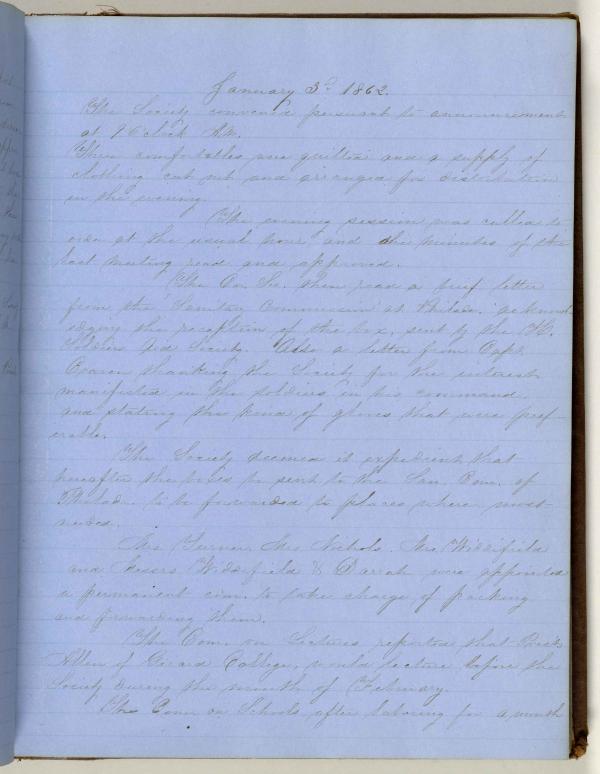 January 3d 1862.
The Society convened pursuant to announcement
at 2 O'clock P.M.
Three comfortables were quilted and a supply of
clothing cut out and arranged for distribution
in the evening.
The evening session was called to
order at the usual hour and the minutes of the
last meeting read and approved.
The Cor. Sec. then read a brief letter
from the Sanitary Commission at Philad. acknowl
edging the reception of the box, sent by the H.
Soldiers Aid Society. Also a letter from Capt.
thanking the Society for the interest
manifested in the soldiers in his command
and stating the kind of gloves that were pref
erable.
The Society deemed it expedient that
hereafter the boxes be sent to the San. Com. of
Philad. to be forwarded to places where most
needed.
Mrs Turner, Mrs Nichols, Mrs Widdifield
and Messrs Widdifield & Darrah were appointed
a permanent com. to take charge of packing
and forwarding them.
The Com. on Lectures reported that Prest.
Allen of Girard College, would lecture before the
Society during the month of February.
The Com on Schools after laboring for a month